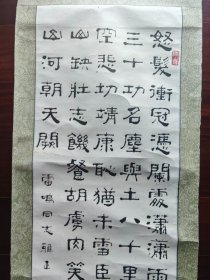 怒髮衝冠憑闌處瀟瀟雨
三十功名塵與土八千里
空悲切靖康恥猶未雪臣
山缺壯志饑餐胡虜肉笑
山河朝天闕
雷鳴同志雅正